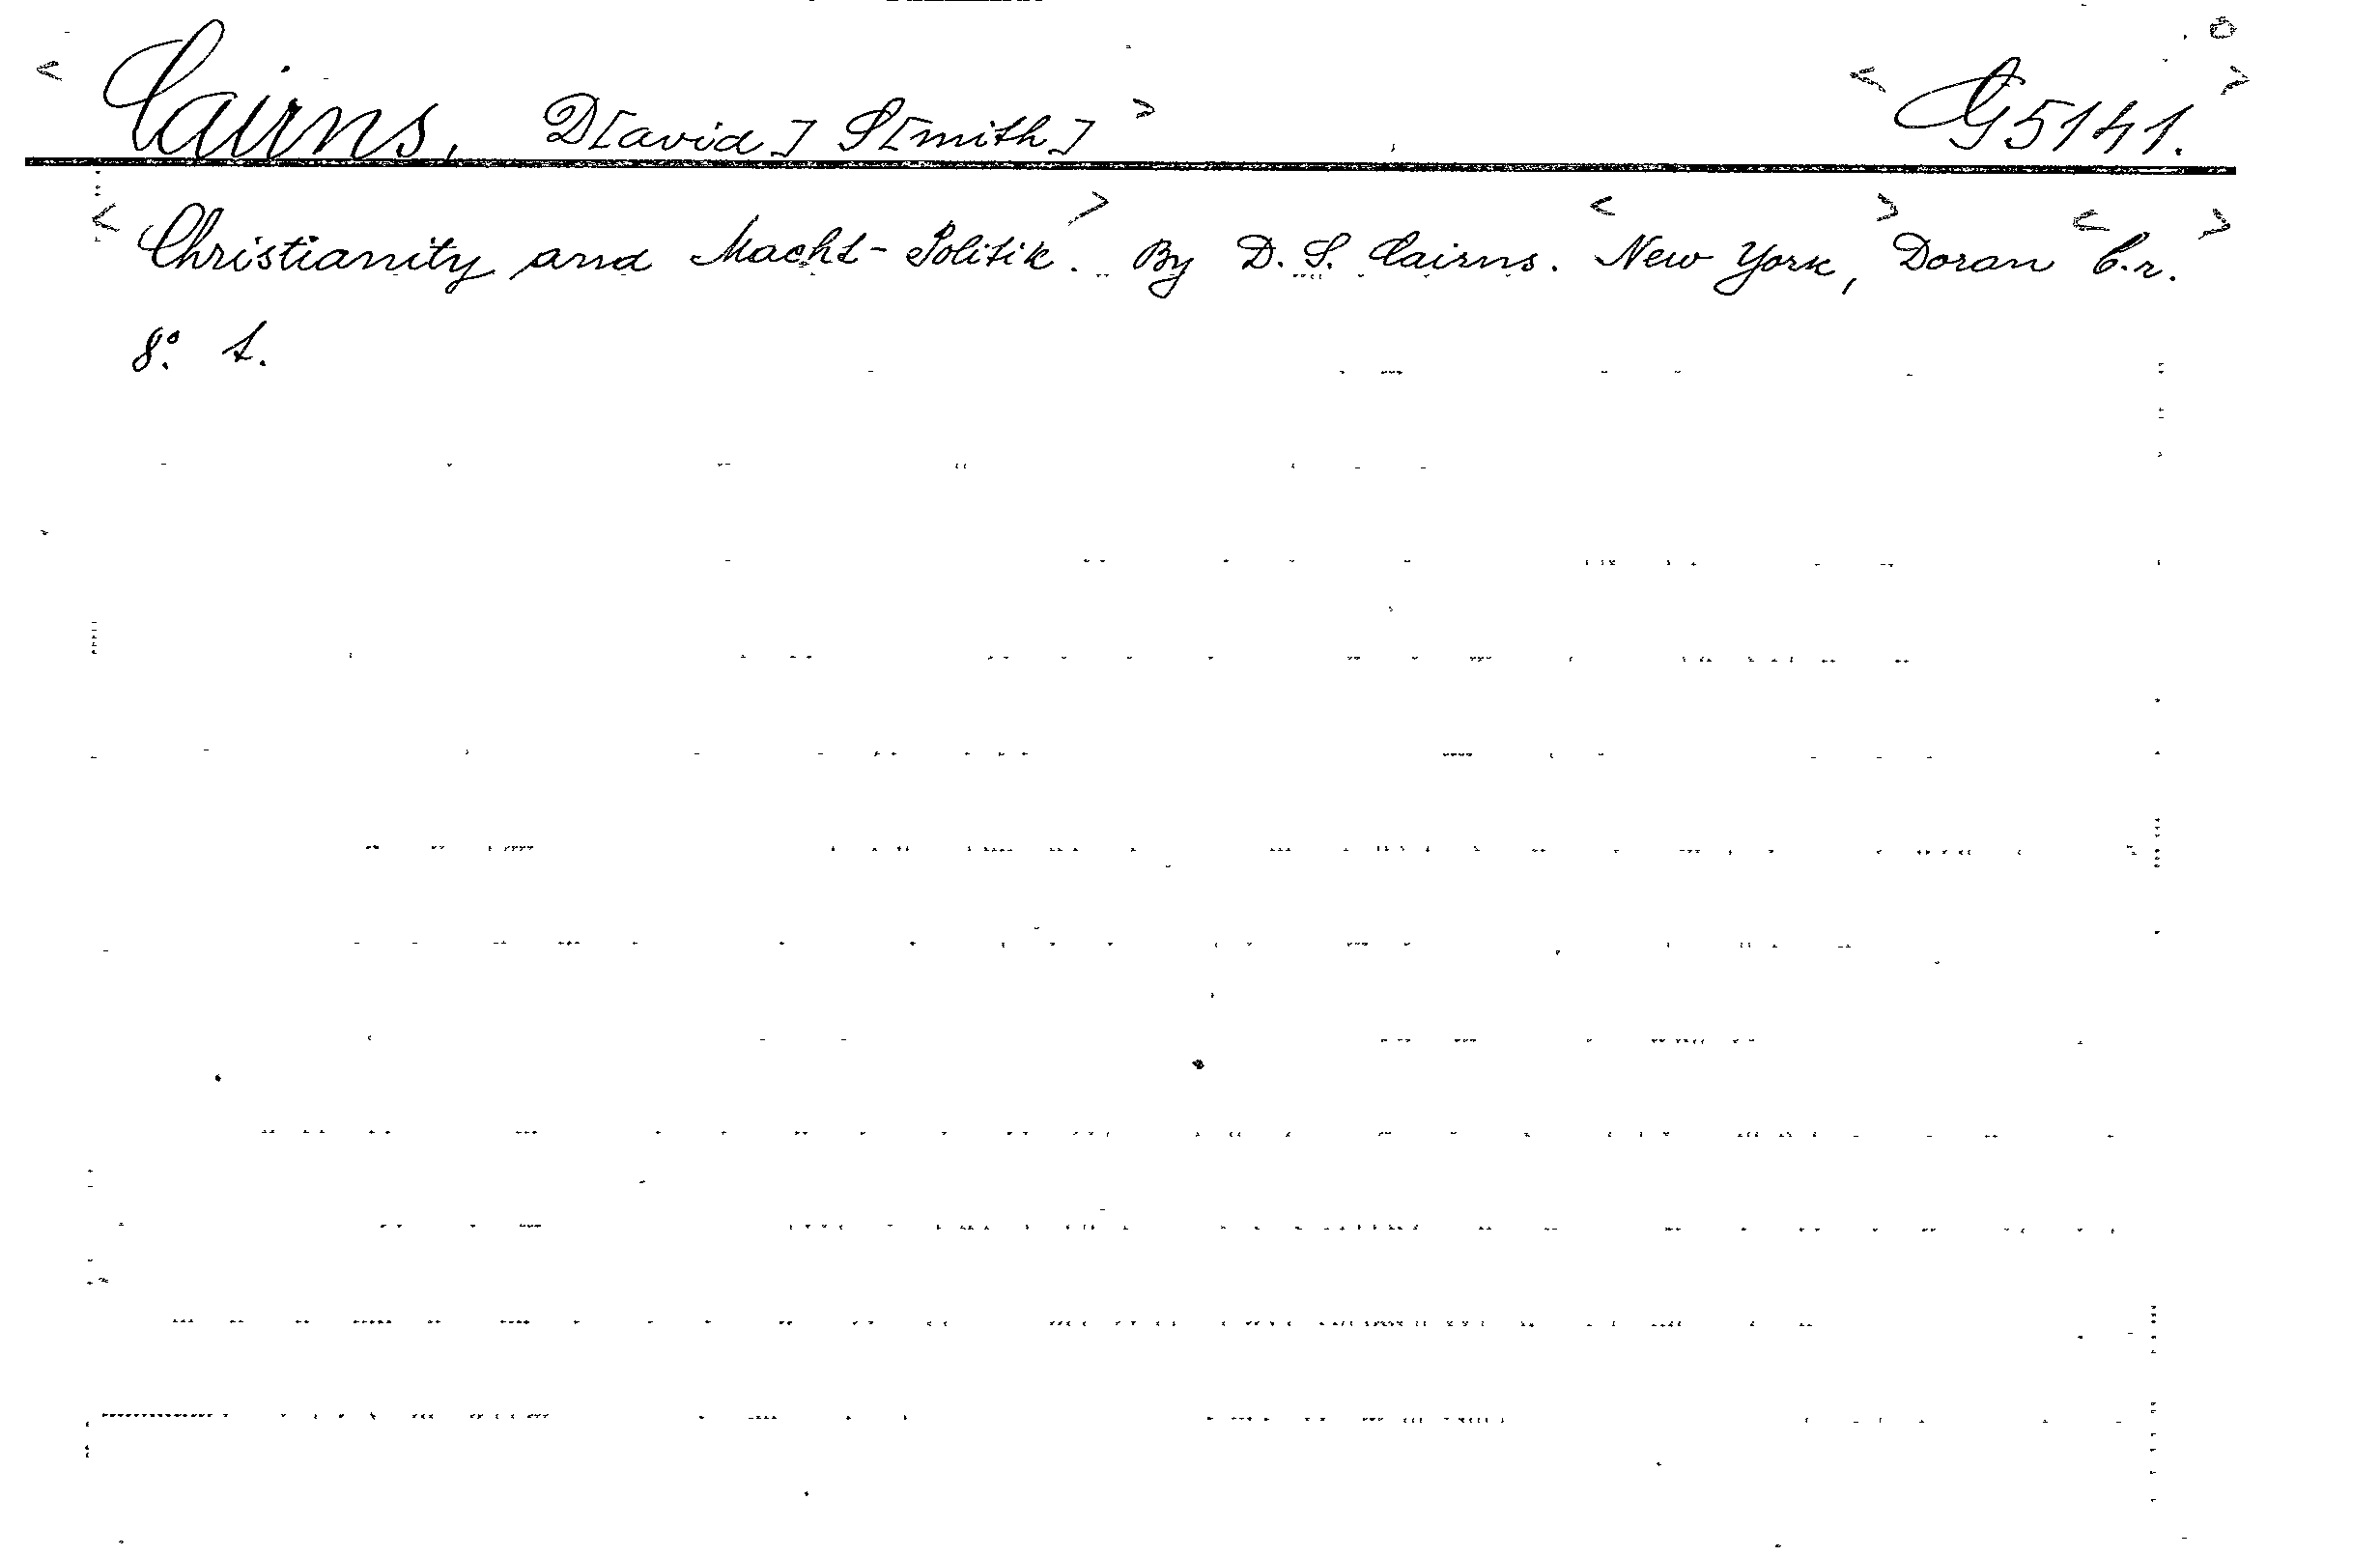 < Cairns, D[avid] S[mith] > < G5141. >
< Christianity and Macht-Politik. > By D. S. Cairns. < New York, > Doran < C.r. >
8º. t.